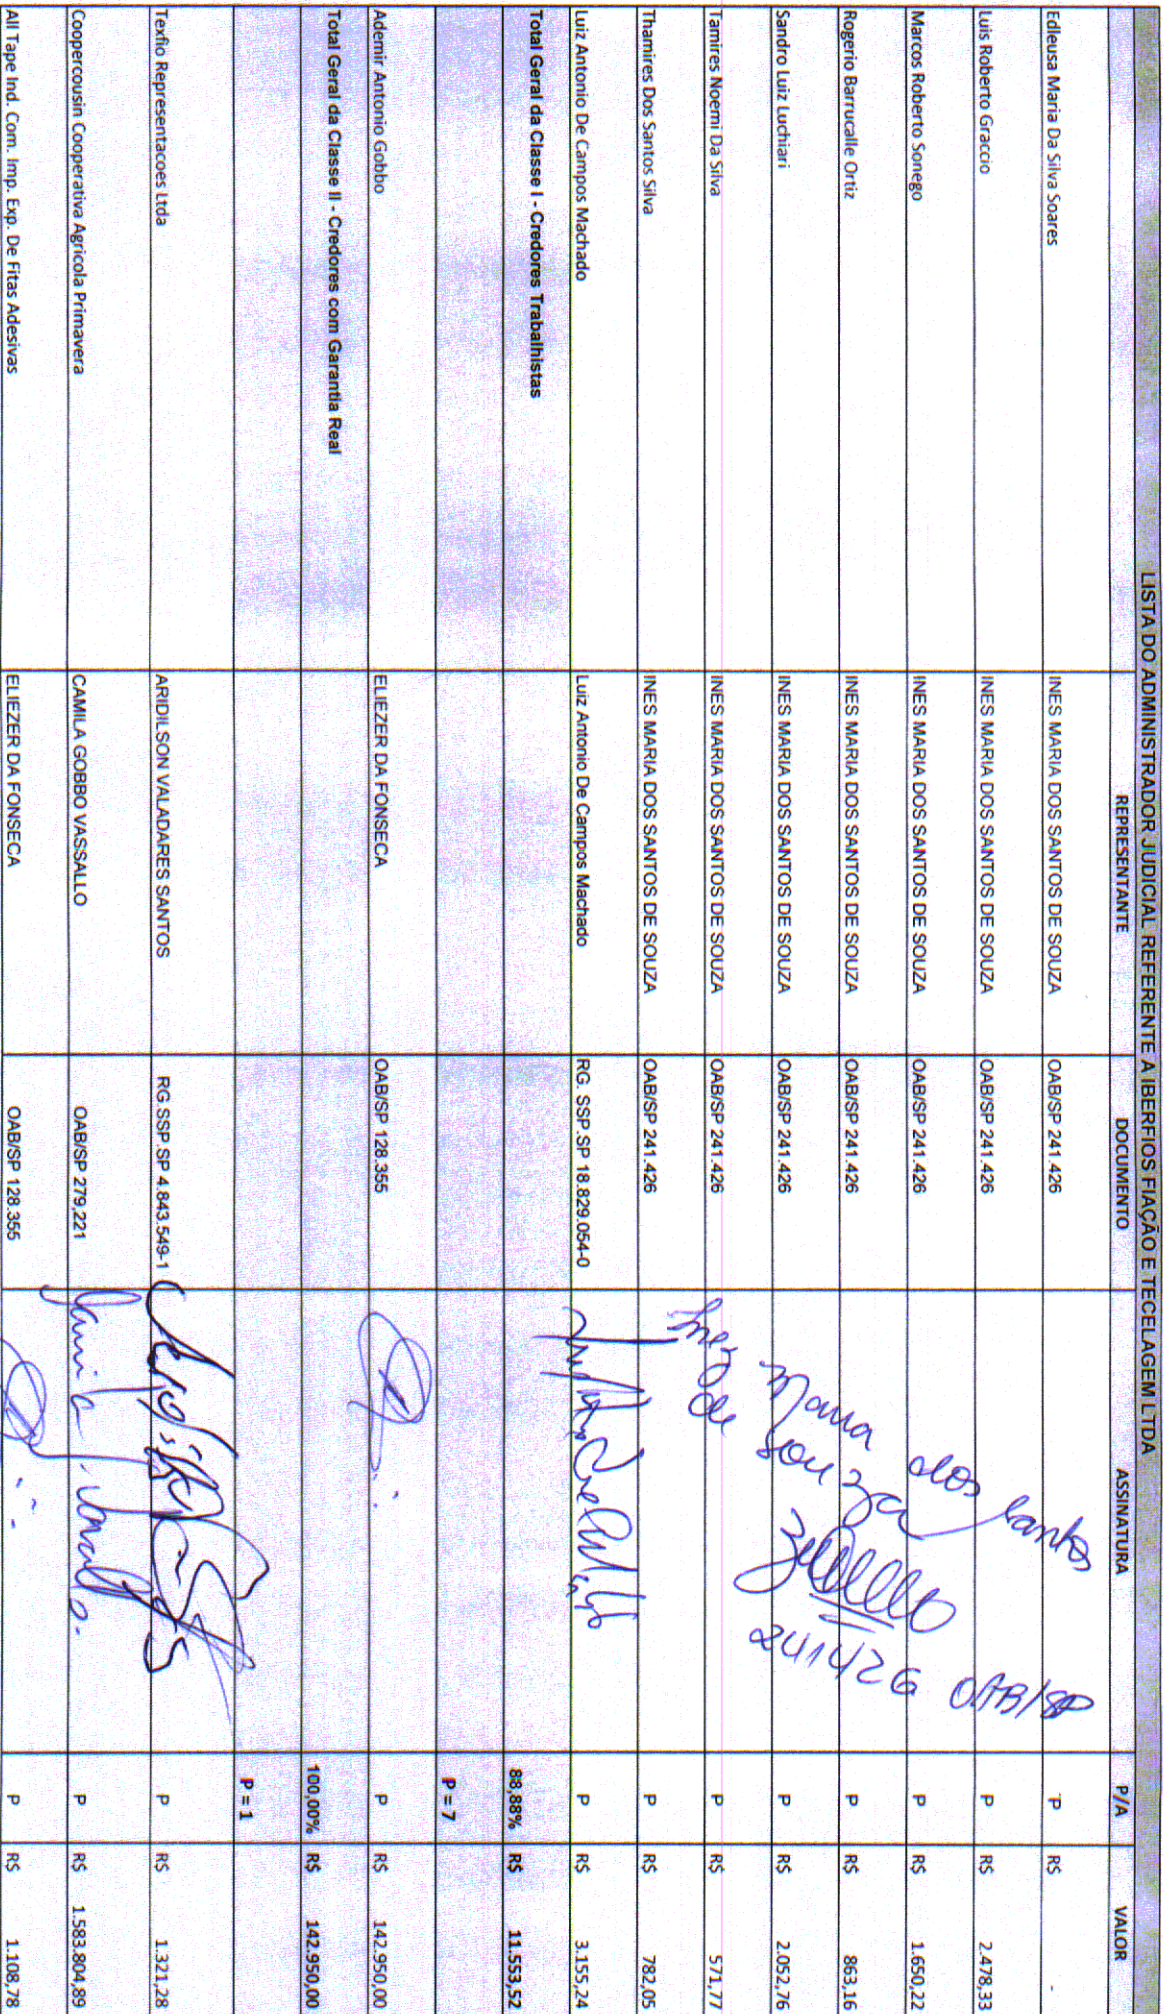 LISTA DO ADMINISTRADOR JUDICIAL REFERENTE A IBERFIOS FIAÇÃO E TECELAGEM LTDA
REPRESENTANTE DOCUMENTO ASSINATURA P/A VALOR
Edleusa Maria Da Silva Soares INES MARIA DOS SANTOS DE SOUZA OAB/SP 241.426 P R$ -
Luis Roberto Graccio INES MARIA DOS SANTOS DE SOUZA OAB/SP 241.426 P R$ 2.478,33
Marcos Roberto Sonego INES MARIA DOS SANTOS DE SOUZA OAB/SP 241.426 P R$ 1.650,22
Rogerio Barrucalle Ortiz INES MARIA DOS SANTOS DE SOUZA OAB/SP 241.426 P R$ 863,16
Sandro Luiz Luchiari INES MARIA DOS SANTOS DE SOUZA OAB/SP 241.426 P R$ 2.052,76
Tamires Noemi Da Silva INES MARIA DOS SANTOS DE SOUZA OAB/SP 241.426 P R$ 571,77
Thamires Dos Santos Silva INES MARIA DOS SANTOS DE SOUZA OAB/SP 241.426 P R$ 782,05
Inez Maria dos Santos
de Souza
OAB/SP
241426
Luiz Antonio De Campos Machado Luiz Antonio De Campos Machado RG. SSP.SP 18.829.054-0 P R$ 3.155,24
Total Geral da Classe I - Credores Trabalhistas 88,88% R$ 11.553,52
P = 7
Ademir Antonio Gobbo ELIEZER DA FONSECA OAB/SP 128.355 P R$ 142.950,00
Total Geral da Classe II - Credores com Garantia Real 100,00% R$ 142.950,00
P = 1
Texfio Representacoes Ltda ARIDILSON VALADARES SANTOS RG.SSP.SP 4.843.549-1 P R$ 1.321,28
Coopercousin Cooperativa Agricola Primavera CAMILA GOBBO VASSALLO OAB/SP 279,221 P R$ 1.583.804,89
All Tape Ind. Com. Imp. Exp. De Fitas Adesivas ELIEZER DA FONSECA OAB/SP 128.355 P R$ 1.108,78